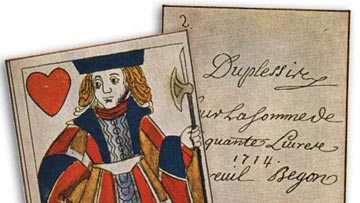 2.
Duplessin
our La Somme de
quante Livres
1714.
reuil Begon